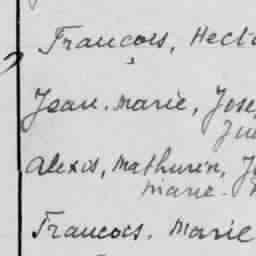 Francois, Hect
Jean. Marie, Jose
Alexis, Mathurin, J
Marie.
Francois. Marie